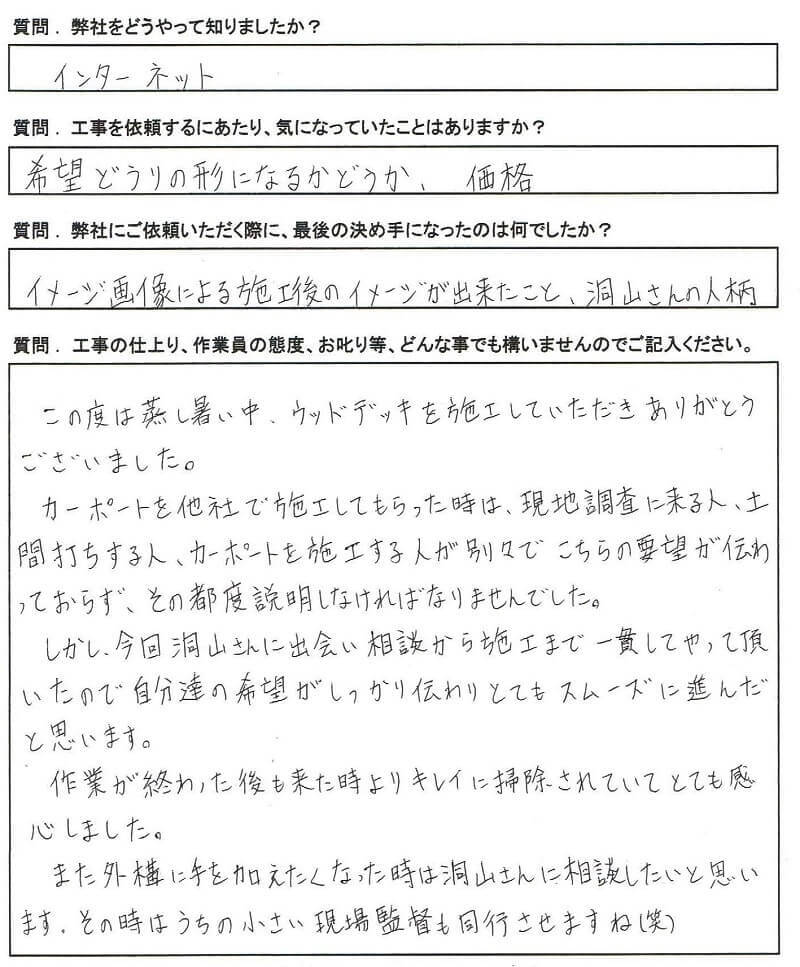 質問．弊社をどうやって知りましたか？
インターネット
質問．工事を依頼するにあたり、気になっていたことはありますか？
希望どうりの形になるかどうか、価格
質問．弊社にご依頼いただく際に、最後の決め手になったのは何でしたか？
イメージ画像による施工後のイメージが出来たこと、洞山さんの人柄
質問．工事の仕上り、作業員の態度、お叱り等、どんな事でも構いませんのでご記入ください。
この度は蒸し暑い中、ウッドデッキを施工していただきありがとう
ございました。
カーポートを他社で施工してもらった時は、現地調査に来る人、土
間打ちする人、カーポートを施工する人が別々でこちらの要望が伝わ
っておらず、その都度説明しなければなりませんでした。
しかし、今回洞山さんに出会い相談から施工まで一貫してやって頂
いたので自分達の希望がしっかり伝わりとてもスムーズに進んだ
と思います。
作業が終わった後も来た時よりキレイに掃除されていてとても感
心しました。
また外構に手を加えたくなった時は洞山さんに相談したいと思い
ます。その時はうちの小さい現場監督も同行させますね(笑)